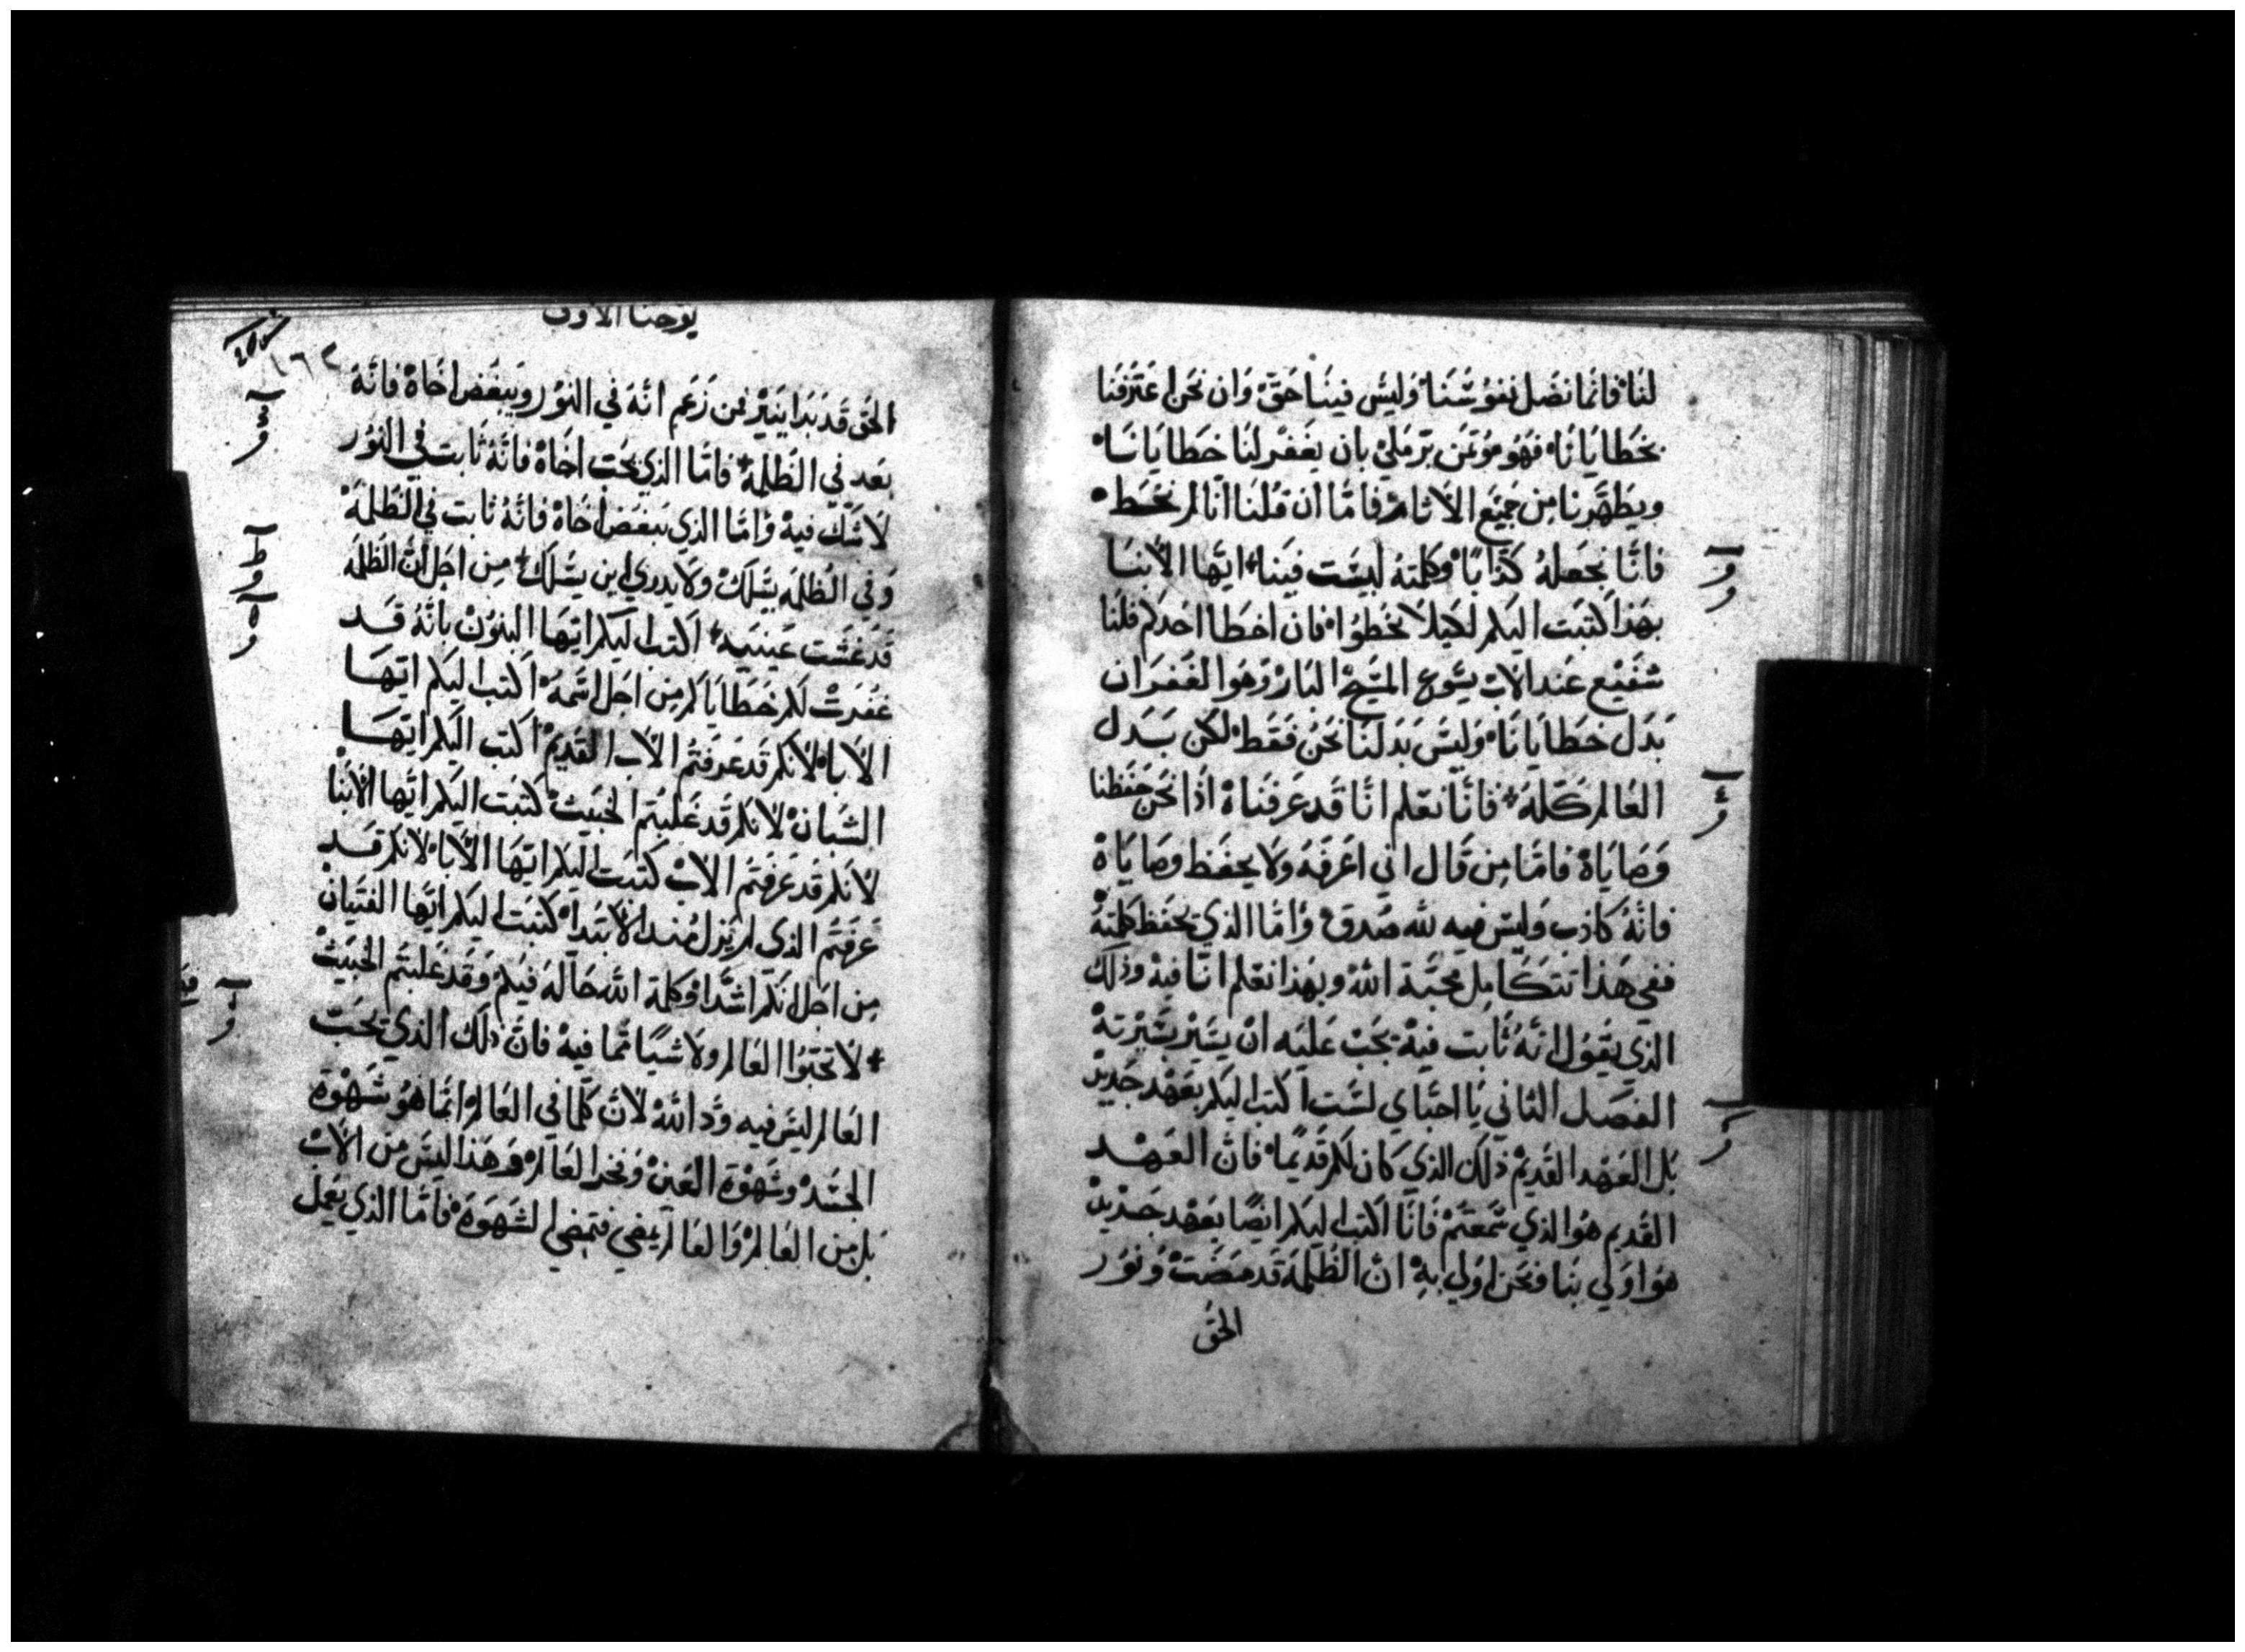 لنا فانما نضل نفوسنا وليس فينا حق وان نحن اعترفنا
بخطايانا فهو مؤتمن بر ملي بان يغفر لنا خطايانا
ويطهرنا من جميع الاثام فاما ان قلنا انا لم نخط
فانا نجعله كذابا وكلمته ليست فينا ايها الابنا
بهذا كتبت اليكم لكيلا تخطوا فان اخطا احدكم فلنا
شفيع عند الاب يسوع المسيح البار وهو الغفران
بدل خطايانا وليس بدلنا نحن فقط لكن بدل
العالم كله فانا نعلم انا قد عرفناه اذا نحن حفظنا
وصاياه فاما من قال اني اعرفه ولا يحفظ وصاياه
فانه كاذب وليس فيه لله صدق واما الذي يحفظ كلمته
ففي هذا تتكامل محبة الله وبهذا نعلم اننا فيه وذلك
الذي يقول انه ثابت فيه يجب عليه ان يسير بسيرته
الفصل الثاني يا احباي لست اكتب اليكم بعهد جديد
بل العهد القديم ذلك الذي كان لكم قديما فان العهد
القديم هو الذي سمعتم فانا اكتب اليكم ايضا بعهد جديد
هو اولى بنا فنحن اولى به ان الظلمة قد مضت ونور
الحق
يوحنا الاولى
١٦٢
الحق قد بدا ينير فمن زعم انه في النور ويبغض اخاه فانه
بعد في الظلمة فاما الذي يحب اخاه فانه ثابت في النور
لا شك فيه واما الذي يبغض اخاه فانه ثابت في الظلمة
وفي الظلمه يسلك ولا يدري اين يسلك من اجل ان الظلمه
قد غشت عينيه اكتب اليكم ايها البنون بانه قد
غفرت لكم خطاياكم من اجل اسمه اكتب اليكم ايها
الابا لانكم قد عرفتم الاب القديم اكتب اليكم ايها
الشبان لانكم قد غلبتم الخبيث كتبت اليكم ايها الابنا
لانكم قد عرفتم الاب كتبت اليكم ايها الابا لانكم قد
عرفتم الذى لم يزل منذ الابتدا كتبت اليكم ايها الفتيان
من اجل انكم اشدا وكلمة الله حاله فيكم وقد غلبتم الخبيث
لا تحبوا العالم ولا شيا مما فيه فان ذلك الذي يحب
العالم ليس فيه ود الله لان كلما في العالم انما هو شهوة
الجسد وشهوة العين وفخر العالم وهذا ليس من الاب
بل من العالم والعالم يمضي فتمضي الشهوة فاما الذي يعمل